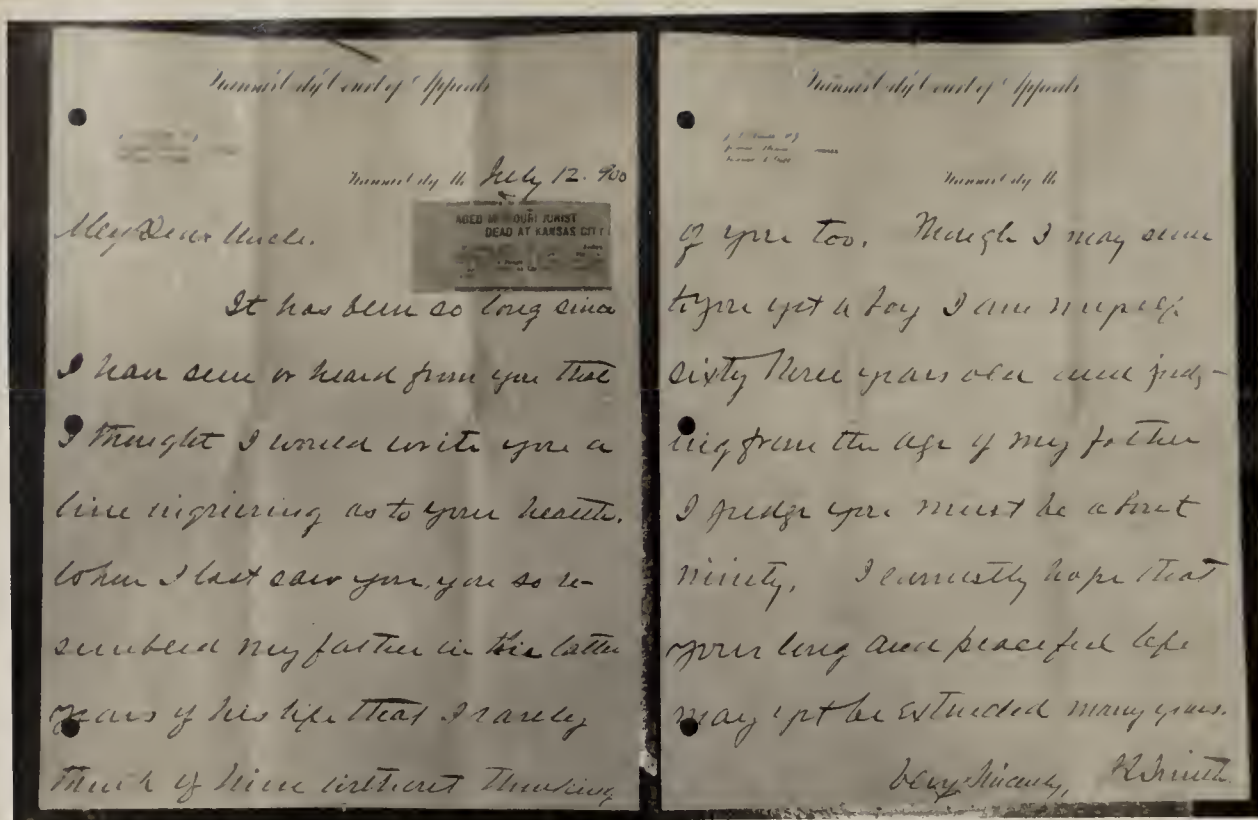 Kansas City Court of Appeals
Kansas City, Mo. July 12. 900
AGED MISSOURI JURIST
DEAD AT KANSAS CITY
My Dear Uncle.
It has been so long since
I have seen or heard from you that
I thought I would write you a
line inquiring as to your health.
When I last saw you, you so re-
sembled my father in the latter
years of his life that I rarely
think of him without thinking
Kansas City Court of Appeals
Kansas City, Mo.
of you too. Though I may seem
to you yet a boy I am nearly
sixty three years old and judg-
ing from the age of my father
I judge you must be about
ninety. I earnestly hope that
your long and peaceful life
may yet be extended many years.
Very Sincerely, Smith